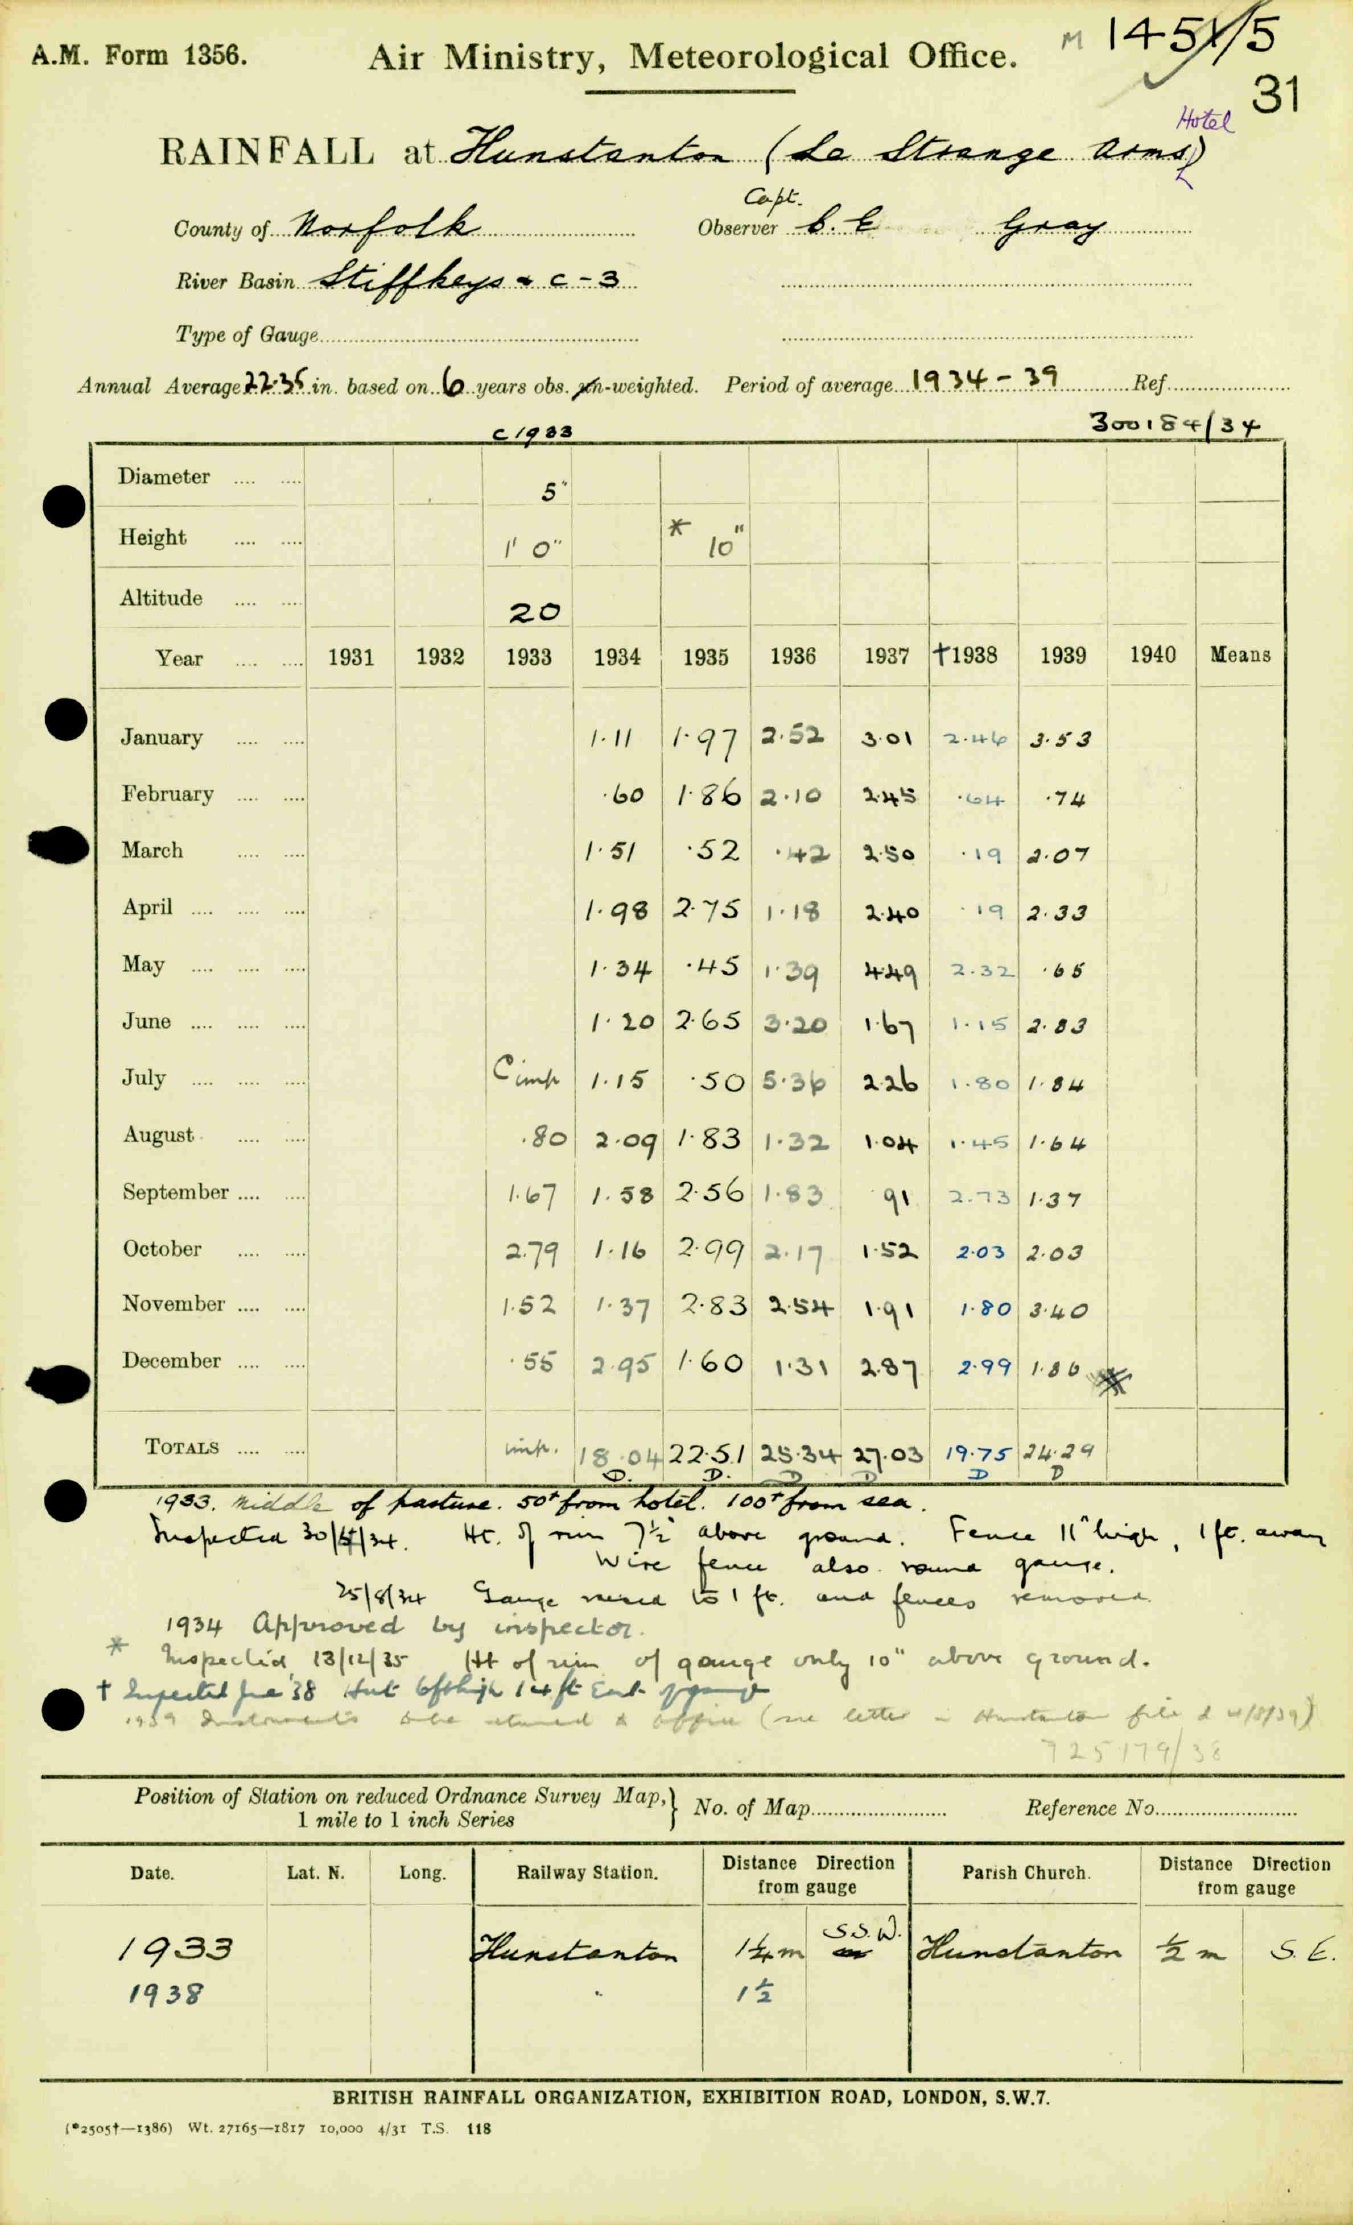 A.M. Form 1356.
Air Ministry, Meteorological Office.
M 1451/5
31
Hotel
RAINFALL at Hunstanton (Le Strange Arms)
Capt.
County of Norfolk Observer C. E. Gray
River Basin Stiffkey & c - 3
Type of Gauge
Annual Average 22.35 in. based on 6 years obs. un-weighted. Period of average 1934 - 39 Ref.
c 1933 300184/34
Diameter 5"
Height 1' 0" * 10"
Altitude 20
Year 1931 1932 1933 1934 1935 1936 1937 †1938 1939 1940 Means
January 1.11 1.97 2.52 3.01 2.46 3.53
February .60 1.86 2.10 2.45 .64 .74
March 1.51 .52 .42 2.50 .19 2.07
April 1.98 2.75 1.18 2.40 .19 2.33
May 1.34 .45 1.39 4.49 2.32 .65
June 1.20 2.65 3.20 1.67 1.15 2.83
July C imp 1.15 .50 5.36 2.26 1.80 1.84
August .80 2.09 1.83 1.32 1.04 1.45 1.64
September 1.67 1.58 2.56 1.83 .91 2.73 1.37
October 2.79 1.16 2.99 2.17 1.52 2.03 2.03
November 1.52 1.37 2.83 2.54 1.91 1.80 3.40
December .55 2.95 1.60 1.31 2.87 2.99 1.86
TOTALS imp. 18.04 22.51 25.34 27.03 19.75 24.29
D. D. D D D D
1933. Middle of pasture. 50+ from hotel. 100+ from sea.
Inspected 30/5/34. Ht. of rim 7½" above ground. Fence 11" high, 1 ft. away
Wire fence also round gauge.
25/8/34 Gauge raised to 1 ft. and fences removed
1934 Approved by inspector.
* Inspected 13/12/35 Ht of rim of gauge only 10" above ground.
† Inspected June '38 Hut 6ft high 14 ft East of gauge
1939 Instruments to be returned to office (see letter in Hunstanton file d 4/8/39)
725179/38
Position of Station on reduced Ordnance Survey Map,
1 mile to 1 inch Series } No. of Map Reference No.
Date. Lat. N. Long. Railway Station. Distance Direction from gauge Parish Church. Distance Direction from gauge
1933 Hunstanton 1¼ m S.S.W. Hunstanton ½ m S. E.
1938 " 1½
BRITISH RAINFALL ORGANIZATION, EXHIBITION ROAD, LONDON, S.W.7.
(*2505†—1386) Wt. 27165—1817 10,000 4/31 T.S. 118